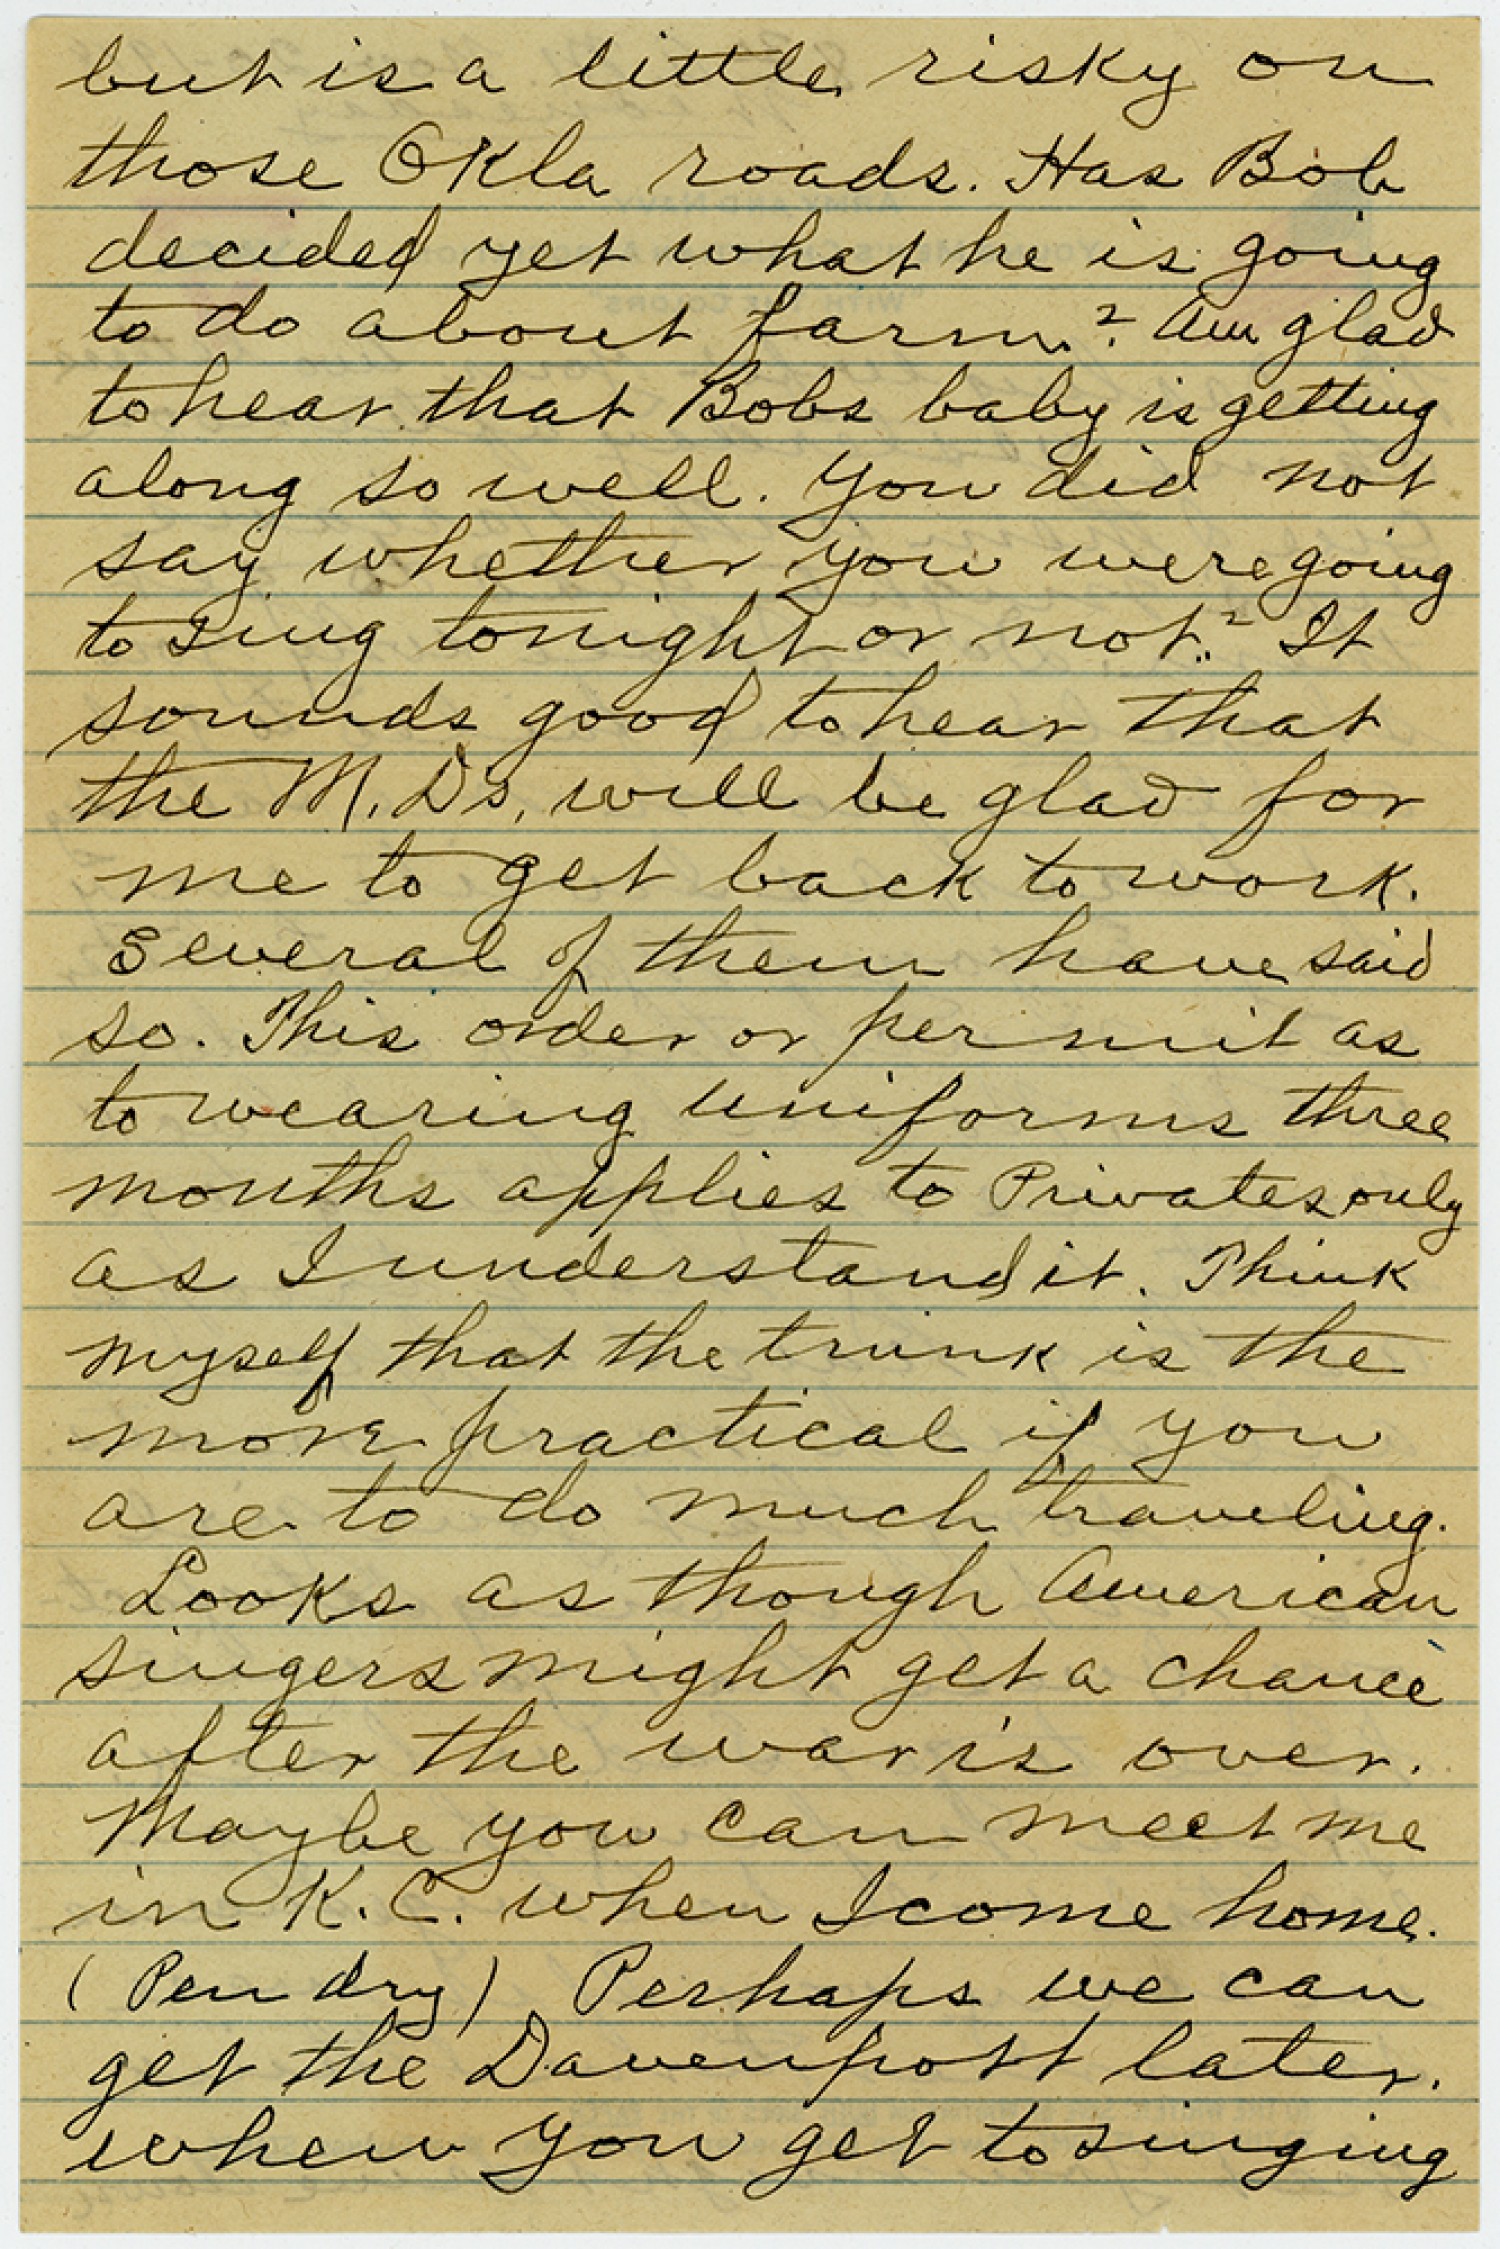 but is a little risky on
those Okla roads. Has Bob
decided yet what he is going
to do about farm? Am glad
to hear that Bobs baby is getting
along so well. You did not
say whether you were going
to sing tonight or not? It
sounds good to hear that
the M.Ds. will be glad for
me to get back to work.
Several of them have said
so. This order or permit as
to wearing uniforms three
months applies to Privates only
as I understand it. Think
myself that the trunk is the
more practical if you
are to do much traveling.
Looks as though American
singers might get a chance
after the war is over.
Maybe you can meet me
in K.C. when I come home.
(Pen dry) Perhaps we can
get the Davenport later.
when you get to singing